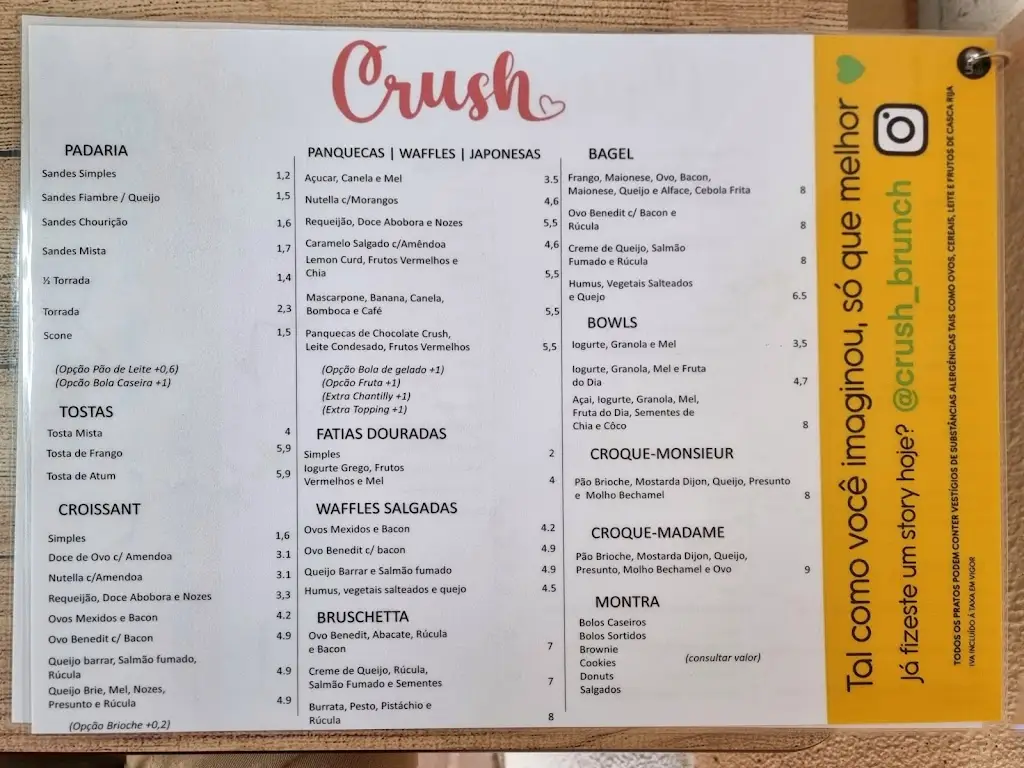 Crush
PADARIA
Sandes Simples 1,2
Sandes Fiambre / Queijo 1,5
Sandes Chourição 1,6
Sandes Mista 1,7
½ Torrada 1,4
Torrada 2,3
Scone 1,5
(Opção Pão de Leite +0,6)
(Opcão Bola Caseira +1)
TOSTAS
Tosta Mista 4
Tosta de Frango 5,9
Tosta de Atum 5,9
CROISSANT
Simples 1,6
Doce de Ovo c/ Amendoa 3.1
Nutella c/Amendoa 3.1
Requeijão, Doce Abobora e Nozes 3,3
Ovos Mexidos e Bacon 4.2
Ovo Benedit c/ Bacon 4.9
Queijo barrar, Salmão fumado,
Rúcula 4.9
Queijo Brie, Mel, Nozes,
Presunto e Rúcula 4.9
(Opção Brioche +0,2)
PANQUECAS | WAFFLES | JAPONESAS
Açucar, Canela e Mel 3.5
Nutella c/Morangos 4,6
Requeijão, Doce Abobora e Nozes 5,5
Caramelo Salgado c/Amêndoa 4,6
Lemon Curd, Frutos Vermelhos e
Chia 5,5
Mascarpone, Banana, Canela,
Bomboca e Café 5,5
Panquecas de Chocolate Crush,
Leite Condesado, Frutos Vermelhos 5,5
(Opção Bola de gelado +1)
(Opcão Fruta +1)
(Extra Chantilly +1)
(Extra Topping +1)
FATIAS DOURADAS
Simples 2
Iogurte Grego, Frutos
Vermelhos e Mel 4
WAFFLES SALGADAS
Ovos Mexidos e Bacon 4.2
Ovo Benedit c/ bacon 4.9
Queijo Barrar e Salmão fumado 4.9
Humus, vegetais salteados e quejo 4.5
BRUSCHETTA
Ovo Benedit, Abacate, Rúcula
e Bacon 7
Creme de Queijo, Rúcula,
Salmão Fumado e Sementes 7
Burrata, Pesto, Pistáchio e
Rúcula 8
BAGEL
Frango, Maionese, Ovo, Bacon,
Maionese, Queijo e Alface, Cebola Frita 8
Ovo Benedit c/ Bacon e
Rúcula 8
Creme de Queijo, Salmão
Fumado e Rúcula 8
Humus, Vegetais Salteados
e Quejo 6.5
BOWLS
Iogurte, Granola e Mel 3,5
Iogurte, Granola, Mel e Fruta
do Dia 4,7
Açai, Iogurte, Granola, Mel,
Fruta do Dia, Sementes de
Chia e Côco 8
CROQUE-MONSIEUR
Pão Brioche, Mostarda Dijon, Queijo, Presunto
e Molho Bechamel 8
CROQUE-MADAME
Pão Brioche, Mostarda Dijon, Queijo,
Presunto, Molho Bechamel e Ovo 9
MONTRA
Bolos Caseiros
Bolos Sortidos
Brownie
Cookies (consultar valor)
Donuts
Salgados
Tal como você imaginou, só que melhor
Já fizeste um story hoje? @crush_brunch
TODOS OS PRATOS PODEM CONTER VESTÍGIOS DE SUBSTÂNCIAS ALERGÉNICAS TAIS COMO OVOS, CEREAIS, LEITE E FRUTOS DE CASCA RIJA
IVA INCLUÍDO À TAXA EM VIGOR